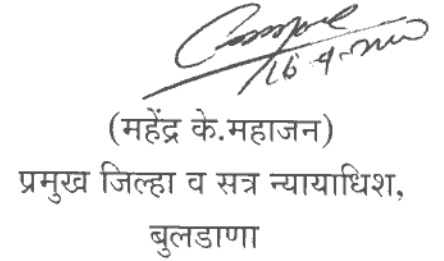 (महेंद्र के.महाजन)
प्रमुख जिल्हा व सत्र न्यायाधिश,
बुलडाणा